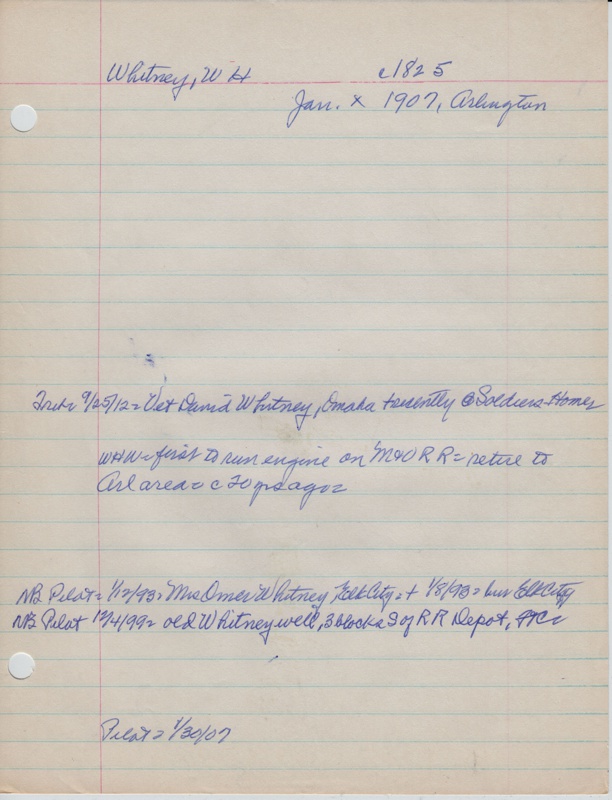 Whitney, W H c1825
Jan. x 1907, Arlington
9/25/12 = Vet David Whitney, Omaha + recently @ Soldiers Home
WHW = first to run engine on M&O RR = retire to
Arl area = c 20 yrs ago =
NB Pilot = 1/12/93 = Mrs Omer Whitney Elk City = + 1/8/93 = bur Elk City
NB Pilot 12/4/99 = old Whitney well, 3 blocks S of RR Depot,
Pilot = 1/30/07